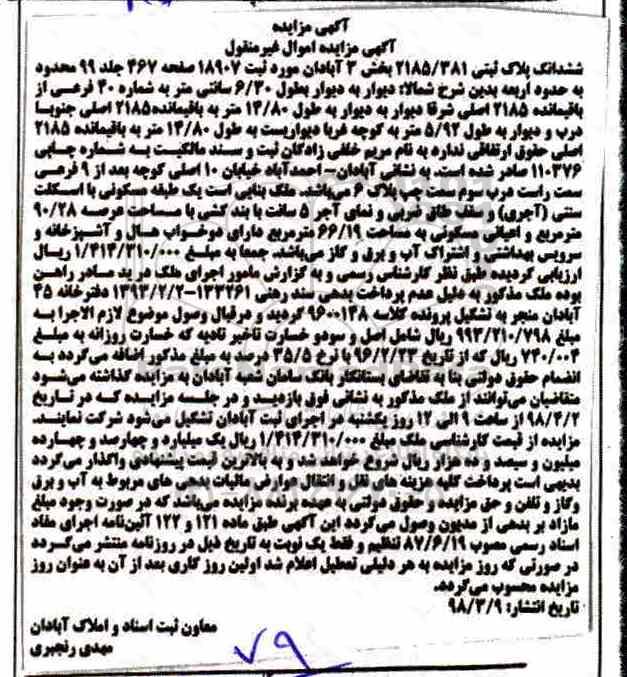 آگهی مزایده
آگهی مزایده اموال غیرمنقول
ششدانگ پلاک ثبتی ۲۱۸۵/۳۸۱ بخش ۳ آبادان مورد ثبت ۱۸۹۰۷ صفحه ۴۶۷ جلد ۹۹ محدود
به حدود اربعه بدین شرح شمالا: دیوار به دیوار بطول ۶/۳۰ سانتی متر به شماره ۴۰ فرعی از
باقیمانده ۲۱۸۵ اصلی شرقا دیوار به دیوار به طول ۱۴/۸۰ متر به باقیمانده۲۱۸۵ اصلی جنوبا
درب و دیوار به طول ۵/۹۲ متر به کوچه غربا دیواریست به طول ۱۴/۸۰ متر به باقیمانده ۲۱۸۵
اصلی حقوق ارتفاقی ندارد به نام مریم خلفی زادگان ثبت و سند مالکیت به شماره چاپی
۱۱۰۳۷۶ صادر شده است. به نشانی آبادان– احمدآباد خیابان ۱۰ اصلی کوچه بعد از ۹ فرعی
سمت راست درب سوم سمت چپ پلاک ۶ می‌باشد. ملک بنایی است یک طبقه مسکونی با اسکلت
سنتی (آجری) و سقف طاق ضربی و نمای آجر ۵ سانت با بند کشی با مساحت عرصه ۹۰/۲۸
مترمربع و اعیانی مسکونی به مساحت ۶۶/۱۹ مترمربع دارای دوخواب هال و آشپزخانه و
سرویس بهداشتی و اشتراک آب و برق و گاز می‌باشد. جمعا به مبلغ ۱/۴۱۴/۳۱۰/۰۰۰ ریال
ارزیابی گردیده طبق نظر کارشناسی رسمی و به گزارش مامور اجرای ملک در ید مسادر راهن
بوده ملک مذکور به دلیل عدم پرداخت بدهی سند رهنی ۱۳۳۲۶۱–۱۳۹۳/۲/۲ دفترخانه ۴۵
آبادان منجر به تشکیل پرونده کلاسه ۹۶۰۰۱۳۸ گردید و درقبال وصول موضوع لازم الاجرا به
مبلغ ۹۹۳/۲۱۰/۷۹۸ ریال شامل اصل و سودو خسارت تاخیر تادیه که خسارت روزانه به مبلغ
۷۴۰/۰۰۴ ریال که از تاریخ ۹۶/۲/۲۳ با نرخ ۳۵/۵ درصد به مبلغ مذکور اضافه می‌گردد به
انضمام حقوق دولتی بنا به تقاضای بستانکار بانک سامان شعبه آبادان به مزایده گذاشته می‌شود
متقاضیان می‌توانند از ملک مذکور به نشانی فوق بازدید و در جلسه مزایده که در تاریخ
۹۸/۴/۲ از ساعت ۹ الی ۱۲ روز یکشنبه در اجرای ثبت آبادان تشکیل می‌شود شرکت نمایند.
مزایده از قیمت کارشناسی ملک مبلغ ۱/۴۱۴/۳۱۰/۰۰۰ ریال یک میلیارد و چهارصد و چهارده
میلیون و سیصد و ده هزار ریال شروع خواهد شد و به بالاترین قیمت پیشنهادی واگذار می‌گردد
بدیهی است پرداخت کلیه هزینه های نقل و انتقال عوارض مالیات بدهی های مربوط به آب و برق
وگاز و تلفن و حق مزایده و حقوق دولتی به عهده برنده مزایده می‌باشد که در صورت وجود مبلغ
مازاد بر بدهی از مدیون وصول می‌گردد این آگهی طبق ماده ۱۲۱ و ۱۲۲ آئین‌نامه اجرای مفاد
اسناد رسمی مصوب ۸۷/۶/۱۹ تنظیم و فقط یک نوبت به تاریخ ذیل در روزنامه منتشر می‌گردد
در صورتی که روز مزایده به هر دلیلی تعطیل اعلام شد اولین روز کاری بعد از آن به عنوان روز
مزایده محسوب می‌گردد.
تاریخ انتشار: ۹۸/۳/۹
معاون ثبت اسناد و املاک آبادان
مهدی رنجبری
۷۹